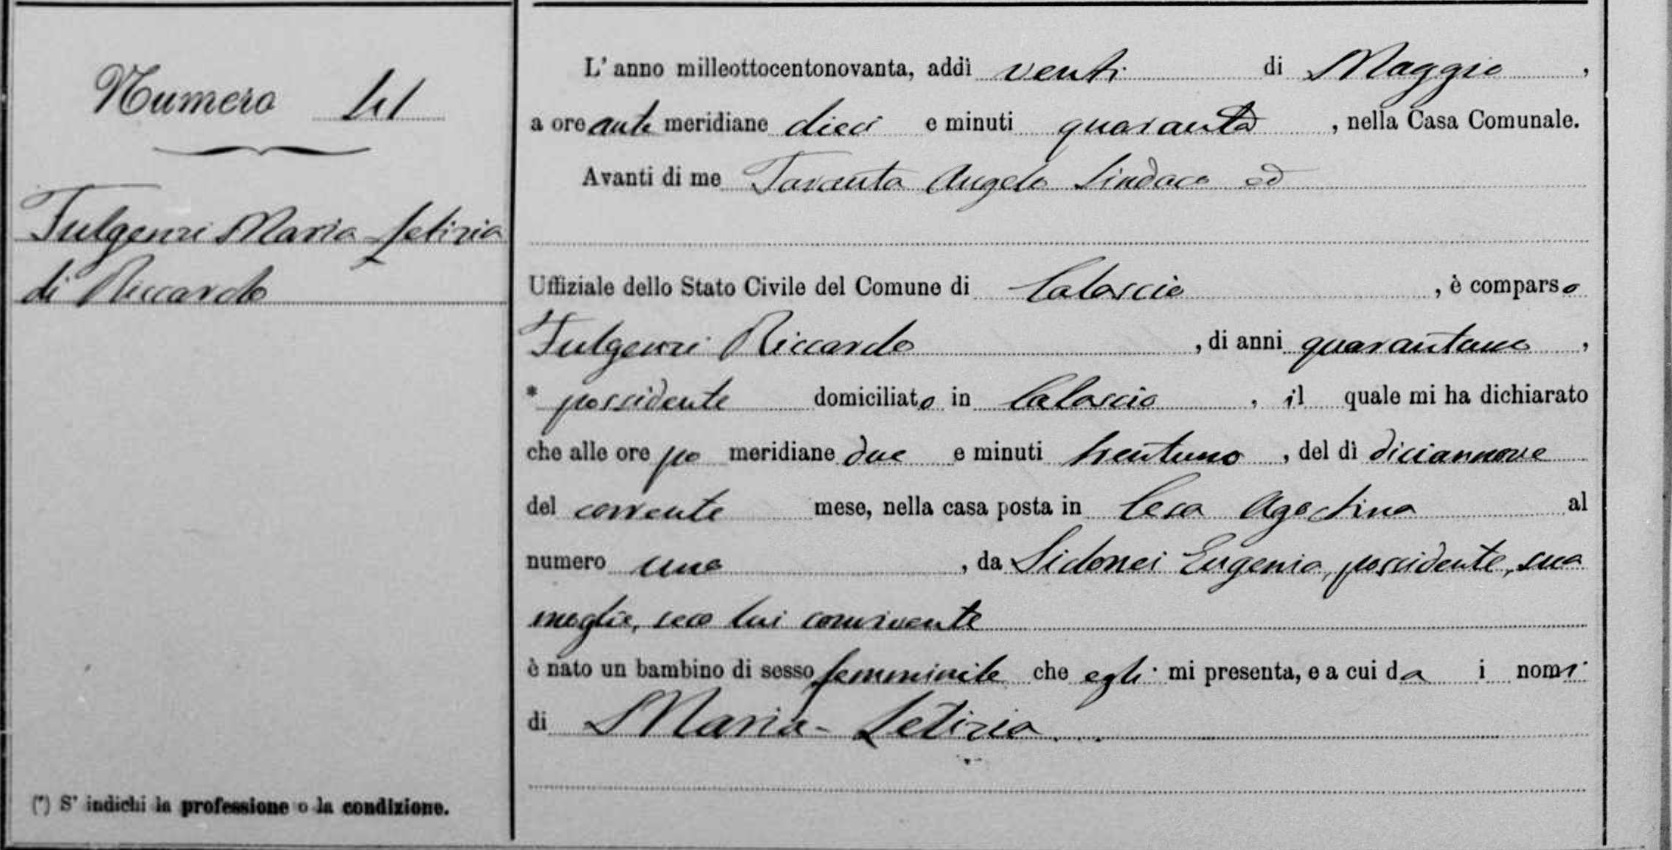 Numero 41
Fulgenzi Maria Letizia
di Riccardo
(*) S' indichi la professione o la condizione.
L' anno milleottocentonovanta, addì venti di Maggio,
a ore ante meridiane dieci e minuti quaranta, nella Casa Comunale.
Avanti di me Taranta Angelo Sindaco ed
Uffiziale dello Stato Civile del Comune di Calascio, è comparso
Fulgenzi Riccardo, di anni quarantuno,
* possidente domiciliato in Calascio, il quale mi ha dichiarato
che alle ore po meridiane due e minuti trentuno, del dì diciannove
del corrente mese, nella casa posta in Agostina al
numero uno, da Sidonei Eugenia, possidente, sua
moglie, seco lui convivente
è nato un bambino di sesso femminile che egli mi presenta, e a cui da i nomi
di Maria-Letizia